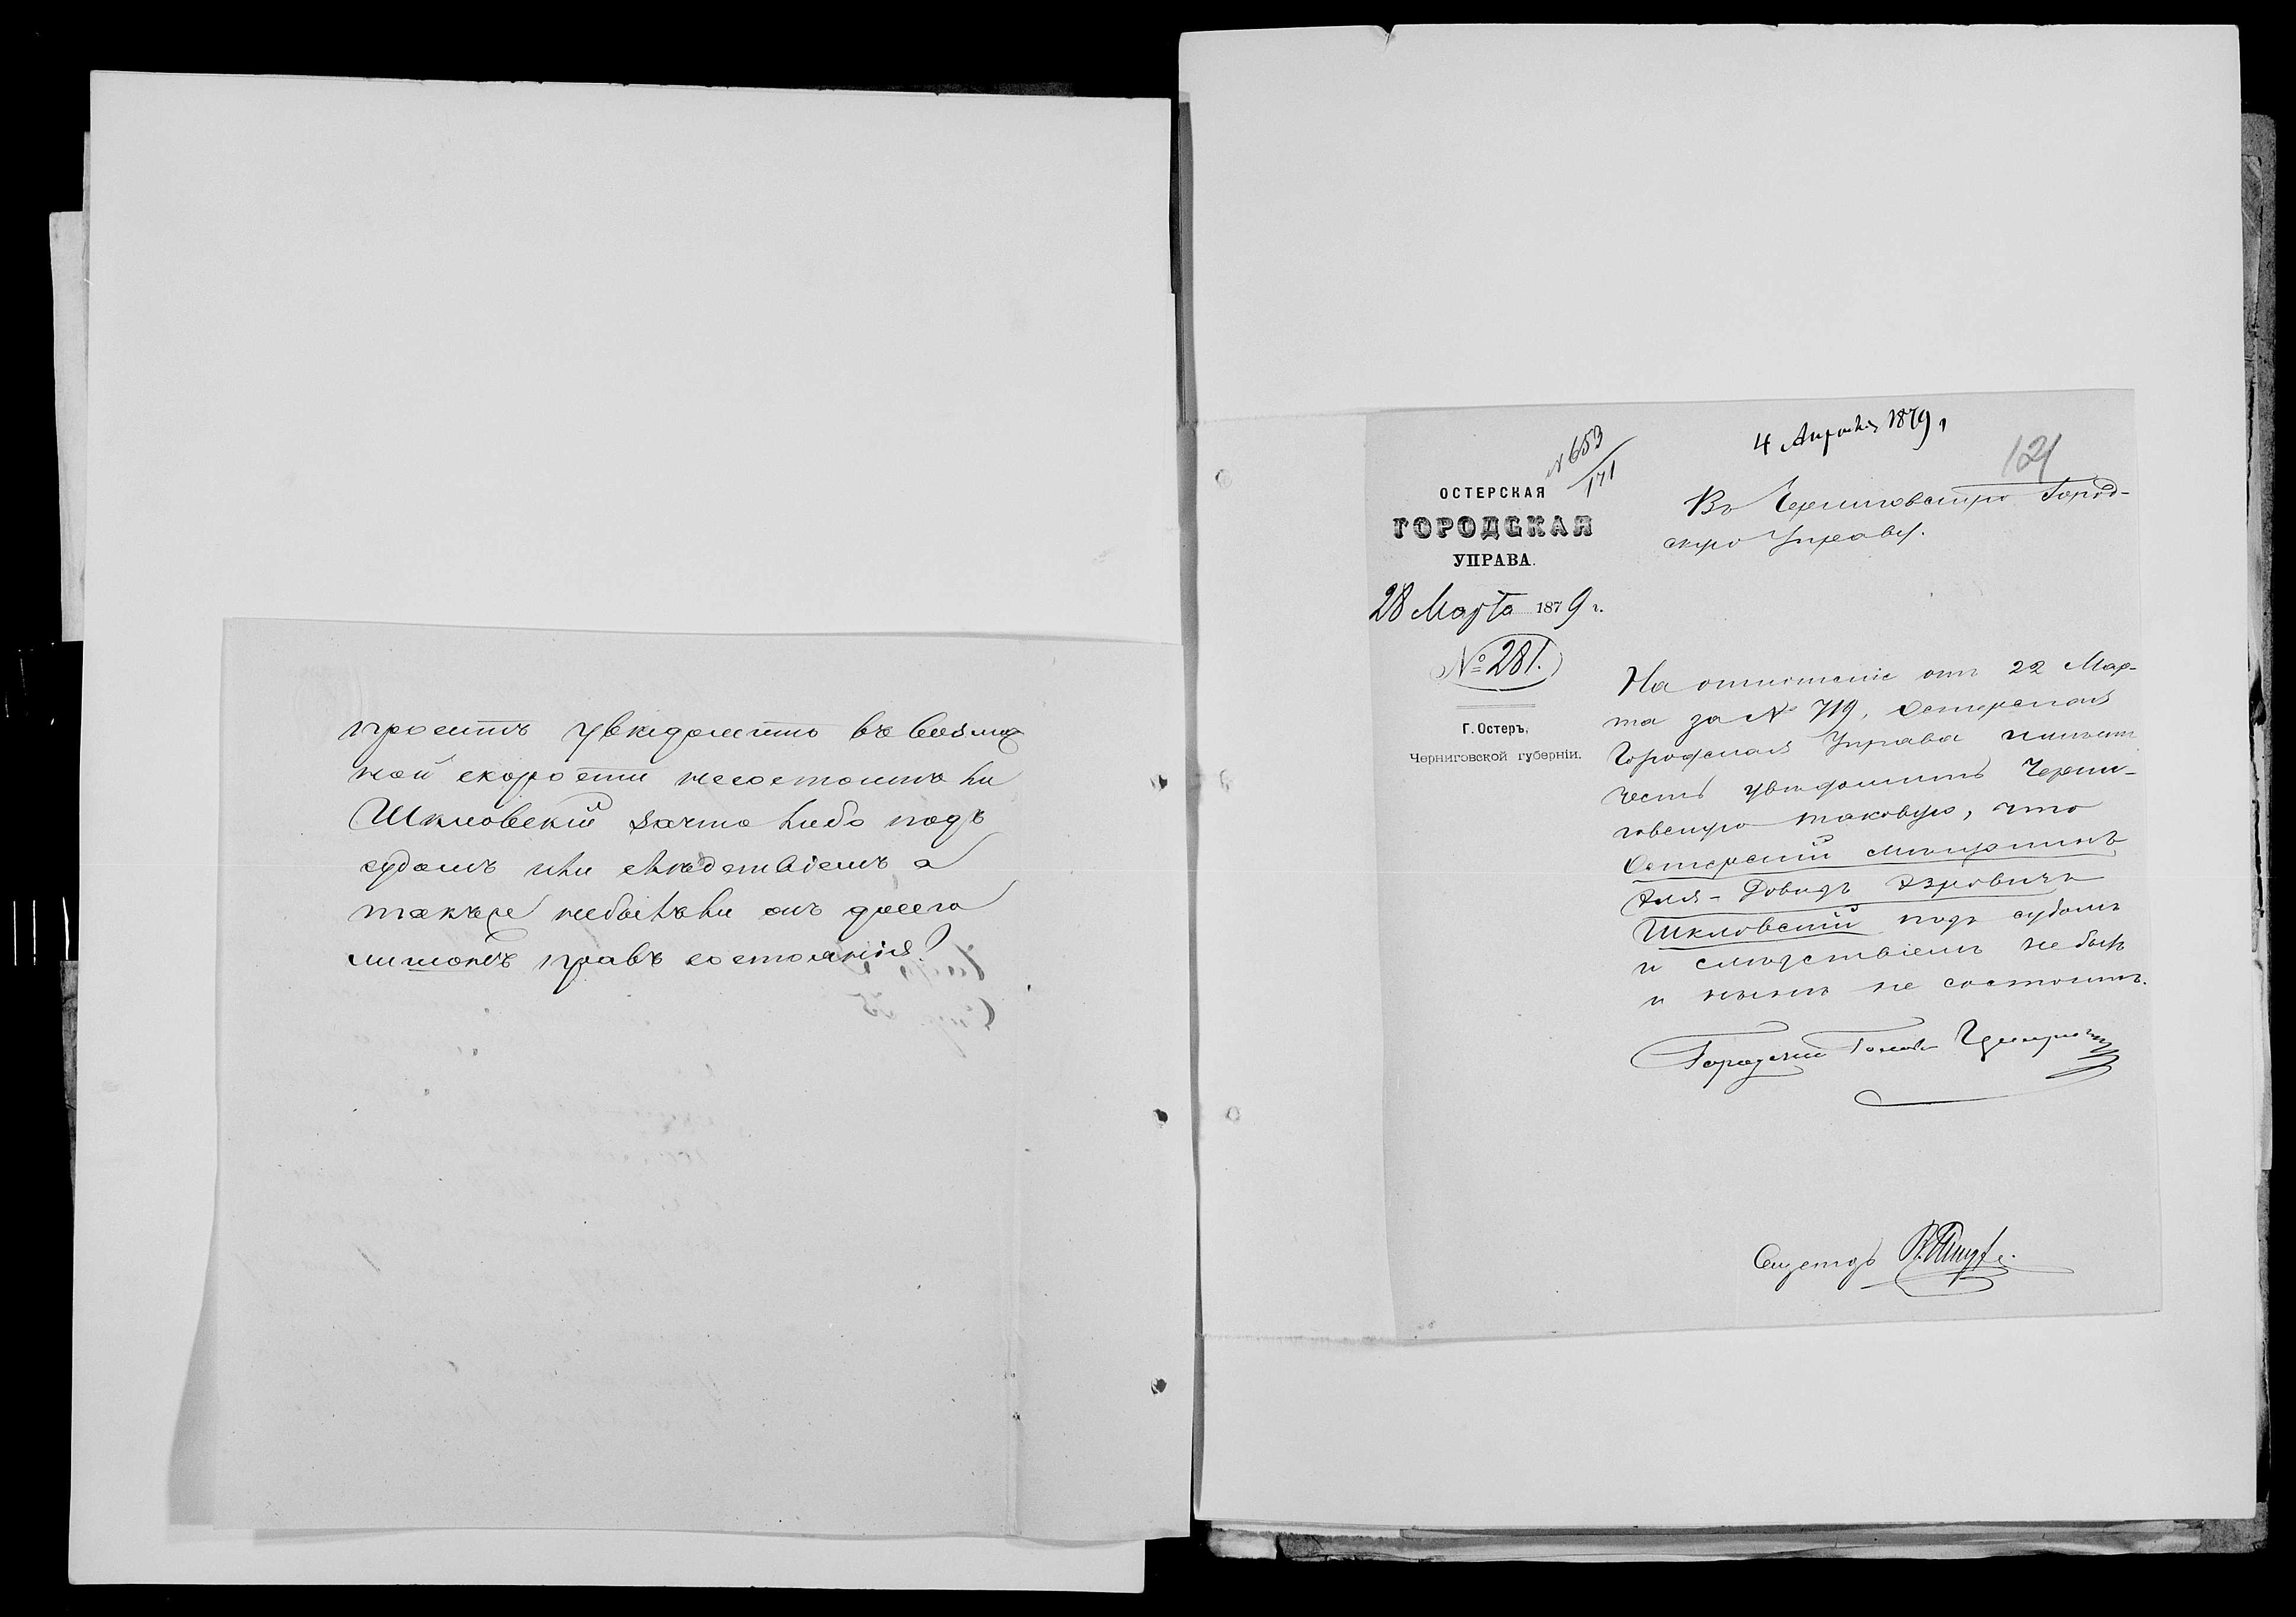 проситъ увѣдомить въ возмож
ной скорости несостоитъ ли
Шкловскій зачто либо подъ
судомъ или слѣдствіемъ а
также небылъ ли онъ досего
лишонъ правъ состоянія?
4 Апрѣля 1879 г
№ 653
171
121
ОСТЕРСКАЯ
ГОРОДСКАЯ
УПРАВА.
28 Марта 1879 г.
№ 281.
Г. Остеръ,
Черниговской губерніи.
Въ Черниговскую Город-
скую Управу.
На отношеніе отъ 22 Мар-
та за № 719, Остерская
Городская Управа имѣетъ
честь увѣдомить Черни-
говскую таковую, что
Остерскій мѣщанинъ
Эля-Довидъ
Шкловскій подъ судомъ
и слѣдствіемъ не былъ
и нынѣ не состоитъ.
Городской Голова
Секретарь